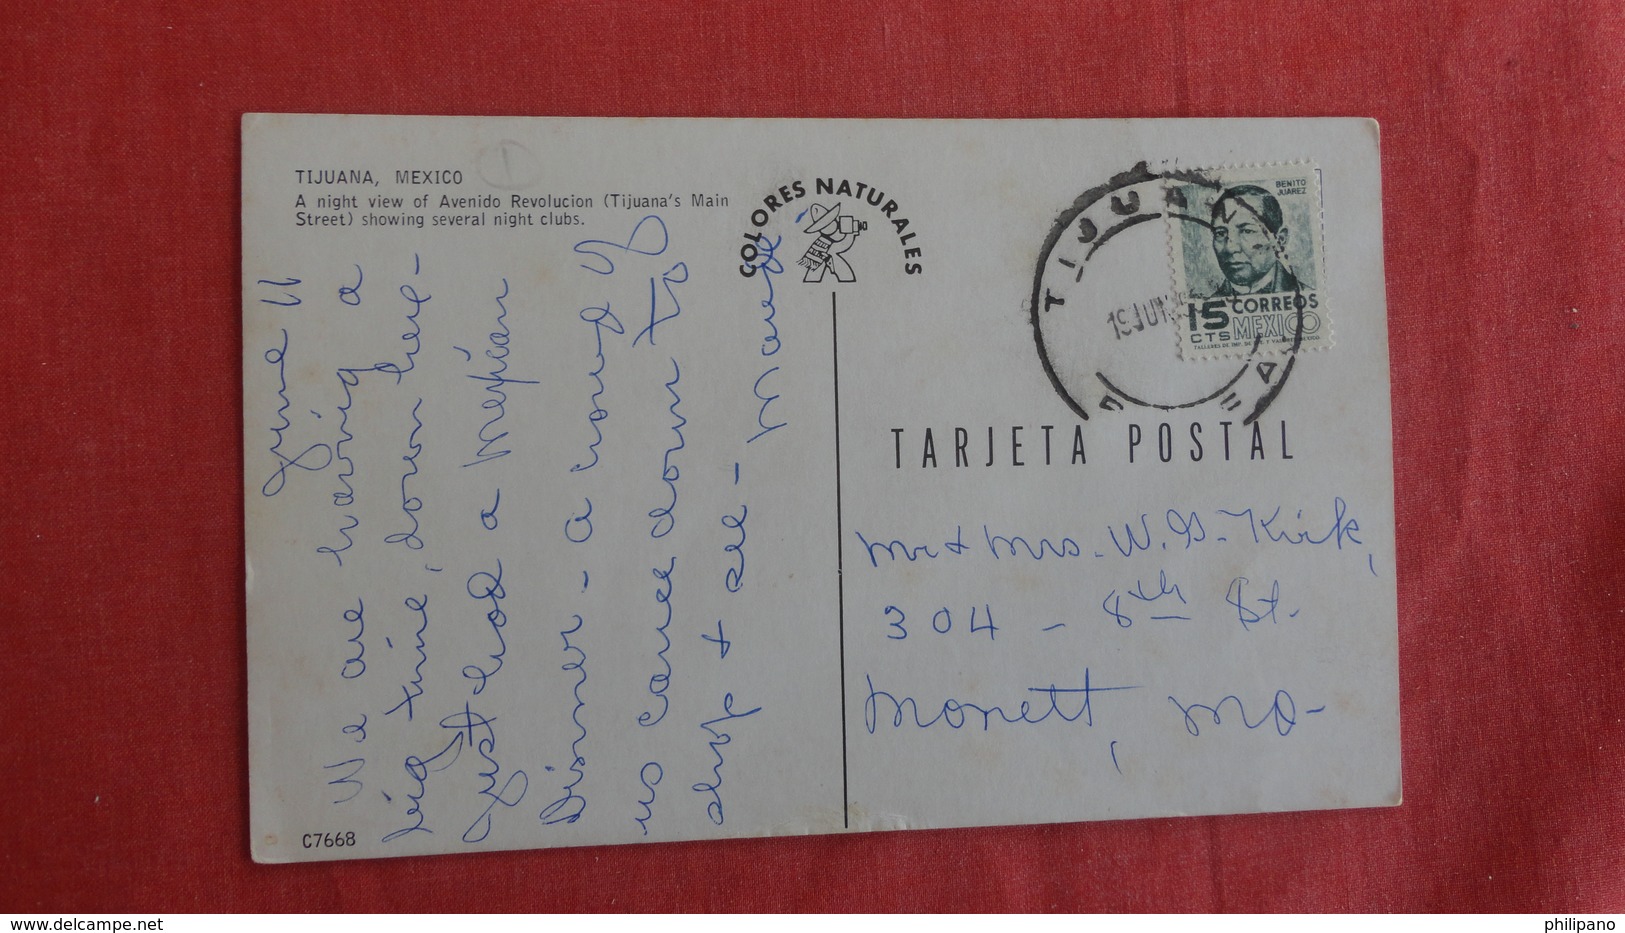 TIJUANA, MEXICO
A night view of Avenido Revolucion (Tijuana's Main
Street) showing several night clubs.
COLORES NATURALES
June 11
We are having a
big time, down here -
Just had a Mexican
Dinner - a crowd of
us came down to
shop + see - Maude
C7668
TIJUANA
19 JUN
BENITO
JUAREZ
15 CORREOS
CTS MEXICO
TARJETA POSTAL
Mr + Mrs. W. G. Kirk,
304 - 8th St.
Monett, Mo -
delcampe.net
philipano